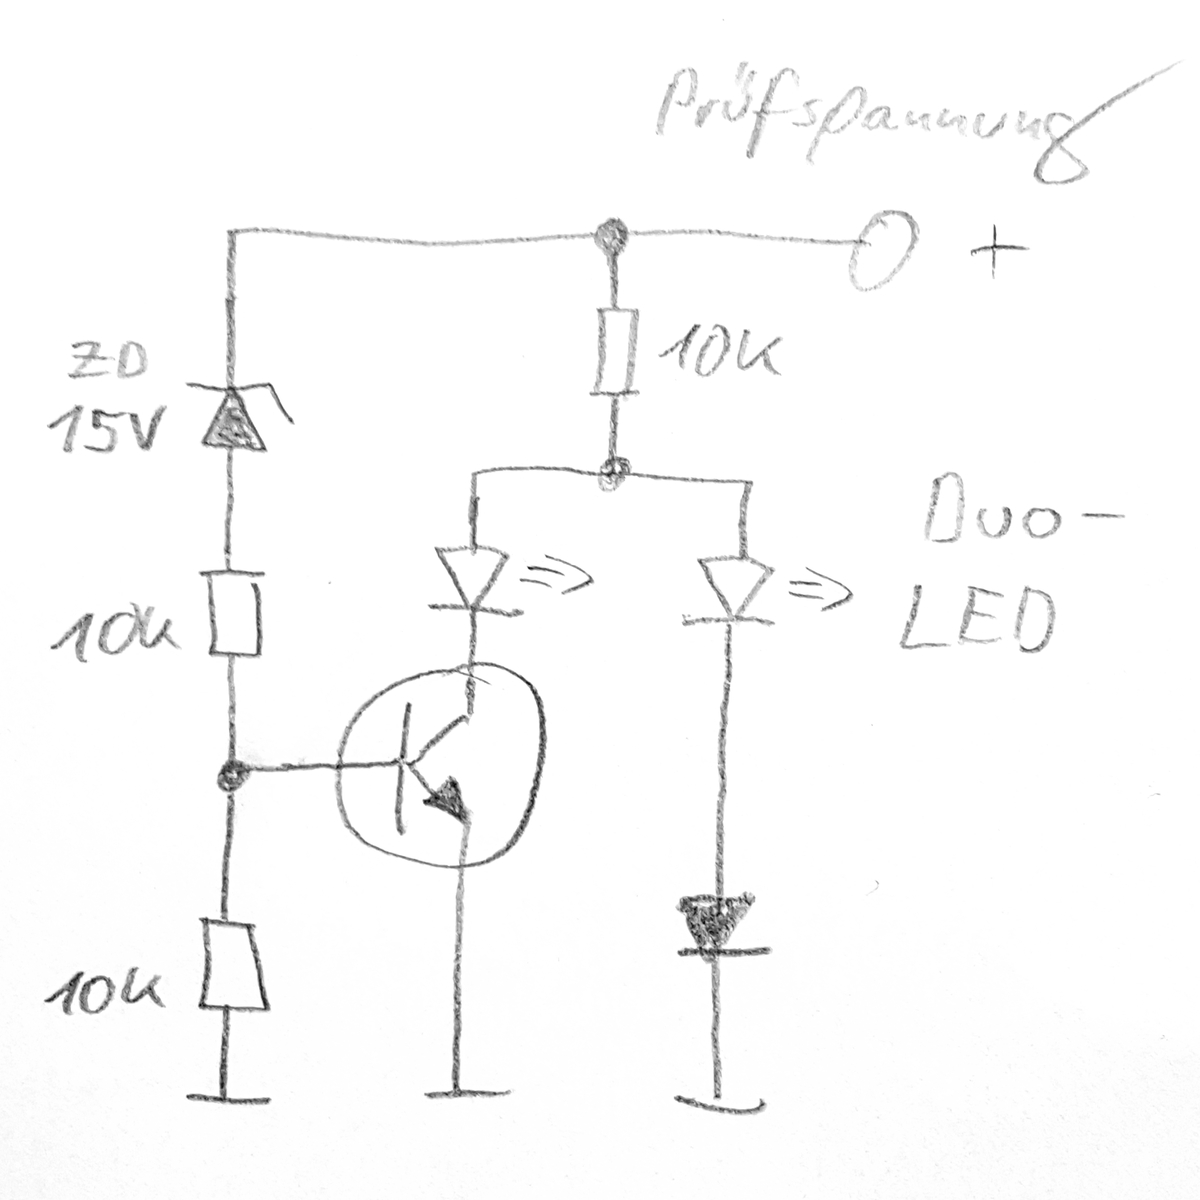 Prüfspannung
+
10k
ZD
15V
Duo-
LED
10k
10k